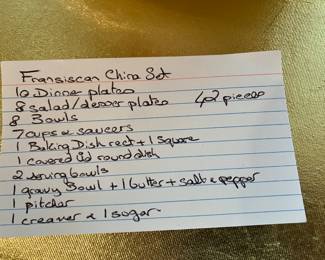 Fransiscan China Set
10 Dinner plates
8 salad/desser plates 42 pieces
8 Bowls
7 cups & saucers
1 Baking Dish rect + 1 Square
1 covered lid round dish
2 serving bowls
1 gravy Bowl + 1 butter + salt & pepper
1 pitcher
1 creamer & 1 sugar